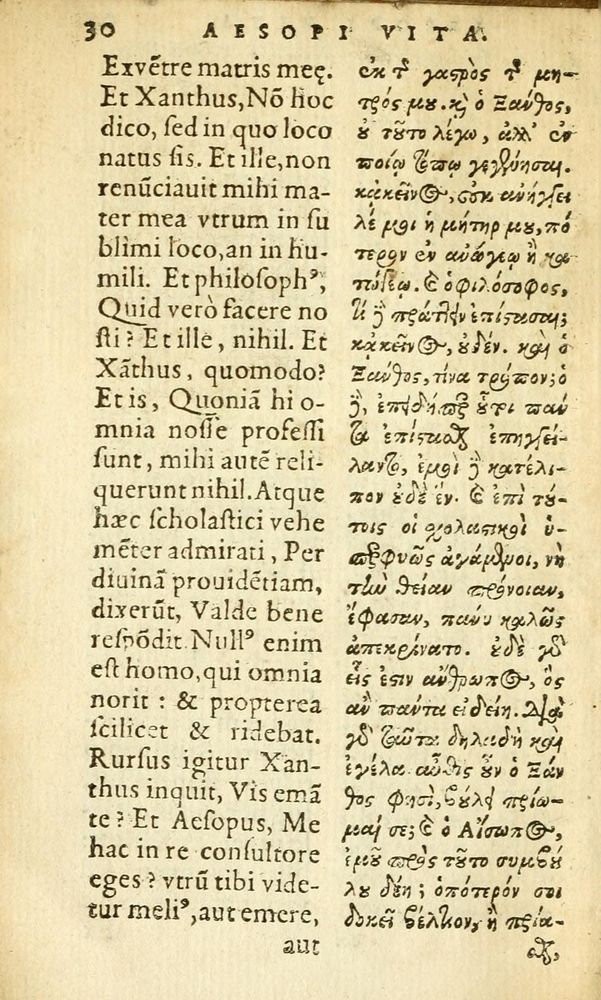 30 AESOPI VITA.
Exvētre matris meę.
Et Xanthus, Nō hoc
dico, ſed in quo loco
natus ſis. Et ille, non
renūciauit mihi ma-
ter mea vtrum in ſu
blimi loco, an in hu-
mili. Et philoſophꝰ,
Quid verò facere no
ſti? Et ille, nihil. Et
Xāthus, quomodo?
Et is, Quoniā hi o-
mnia noſſe profeſſi
ſunt, mihi autē reli-
querunt nihil. Atque
hæc ſcholaſtici vehe
mēter admirati, Per
diuinā prouidētiam,
dixerūt, Valde bene
reſpōdit. Nullꝰ enim
eſt homo, qui omnia
norit : & propterea
ſcilicet & ridebat.
Rurſus igitur Xan-
thus inquit, Vis emā
te? Et Aeſopus, Me
hac in re conſultore
eges? vtrū tibi vide-
tur meliꝰ, aut emere,
aut
ἐκ τῦ γαςρὸς τῦ μη-
τρός μȣ. κ̀ ὁ Ξάνθος,
ȣ̓ τȣ͂το λέγω, ἀλλ' ἐν
ποίῳ τόπῳ γεγέννησαι.
κᾀκεῖνος, οὐκ ἀνήγγει
λέ μοι ἡ μήτηρ μȣ, πό
τερον ἐν ἀνωγίῳ ἢ κα
ὁ φιλόσοφος,
τί δὲ πράττειν ἐπίςασαι;
κᾀκεῖνος, ȣ̓δέν. καὶ ὁ
Ξάνθος, τίνα τρόπον; ὁ
δὲ, ἐπειδήπερ ȣ̔͂τοι πάν
τα ἐπίςασθαι ἐπηγγεί-
λαντο, ἐμοὶ δὲ κατέλι-
πον ȣ̓δὲ ἕν. ἐπὶ τȣ́-
τοις οἱ χολαςικοὶ ὑ-
περφυῶς ἀγάμενοι, νὴ
τὴν θείαν πρόνοιαν,
ἔφασαν, πάνυ καλῶς
ἀπεκρίνατο. ȣ̓δὲ γὰρ
εἷς ἐςιν ἄνθρωπος, ὃς
ἂν πάντα εἰδείη. Διὰ
γὰρ ταῦτα δηλαδὴ καὶ
ἐγέλα. αὖθις ȣ̓͂ν ὁ Ξάν
θος φησὶ, βȣ́λει πρίω-
μαί σε; ὁ Αἴσωπος,
ἐμȣ͂ πρὸς τȣ͂το συμβȣ́
λȣ δέῃ; ὁπότερόν σοι
δοκεῖ βέλτιον, ἢ πρία-